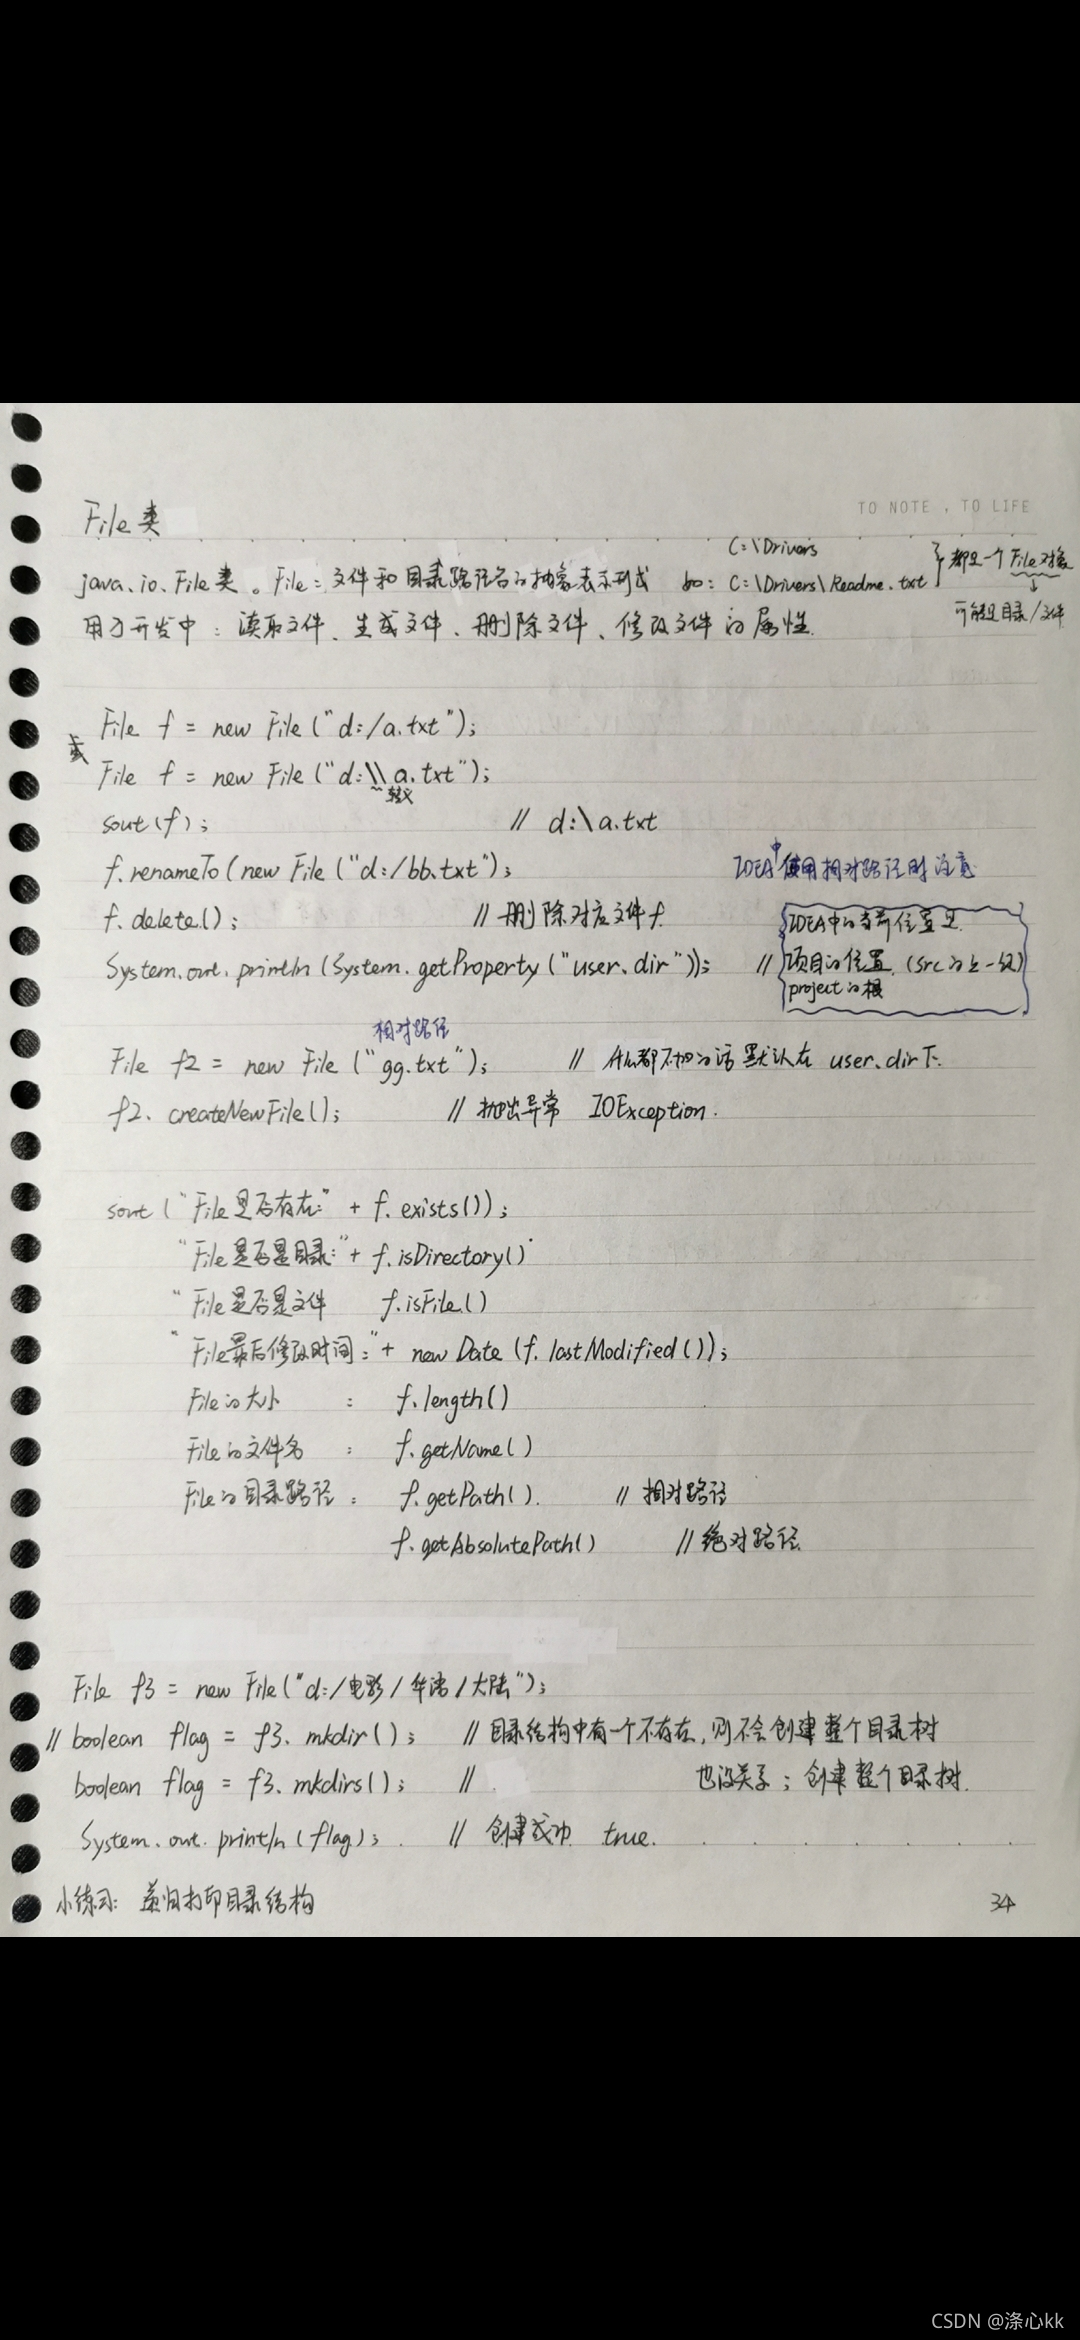 TO NOTE , TO LIFE
File 类
C:\Drivers
java.io.File类。File:文件和目录路径名的抽象表示形式 如: C:\Drivers\Readme.txt } 都是一个File对象
↓
用于开发中:读取文件、生成文件、删除文件、修改文件的属性. 可能是目录/文件
File f = new File("d:/a.txt");
或
File f = new File("d:\\a.txt");
转义
sout(f); // d:\a.txt
f.renameTo(new File("d:/bb.txt");
IDEA中使用相对路径时注意
f.delete(); // 删除对应文件f.
IDEA中的当前位置是
System.out.println(System.getProperty("user.dir")); // 项目的位置.(src的上一级)
project的根
相对路径
File f2 = new File("gg.txt"); // 什么都不加的话默认在 user.dir下.
f2.createNewFile(); // 抛出异常 IOException.
sout("File是否存在:" + f.exists());
"File是否是目录:" + f.isDirectory()
"File是否是文件 f.isFile()
"File最后修改时间:" + new Date(f.lastModified());
File的大小 : f.length()
File的文件名 : f.getName()
File的目录路径: f.getPath(). // 相对路径
f.getAbsolutePath() // 绝对路径.
File f3 = new File("d:/电影/华语/大陆");
// boolean flag = f3.mkdir(); // 目录结构中有一个不存在,则不会创建整个目录树
boolean flag = f3.mkdirs(); // 也没关系;创建整个目录树.
System.out.println(flag); // 创建成功 true.
小练习: 递归打印目录结构
34
CSDN @涤心kk